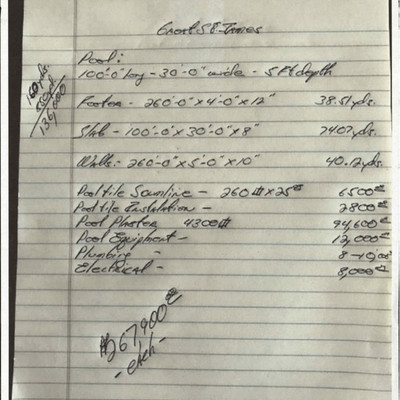 Pool:
100'-0" long - 30'-0" wide - 5 Ft depth
Footer - 260'-0" x 4'-0" x 12" 38.51 yds.
Slab - 100'-0" x 30'-0" x 8" 74.07 yds.
Walls - 260'-0" x 5'-0" x 10" 40.12 yds.
Pool tile - 260 x 25 6500
Pool tile Installation - 2800
Pool Plaster 4300 94,600
Pool Equipment - 12,000
Plumbing - 8-10,000
Electrical - 8,000
160 yds.
136,000
$267,900
- each -